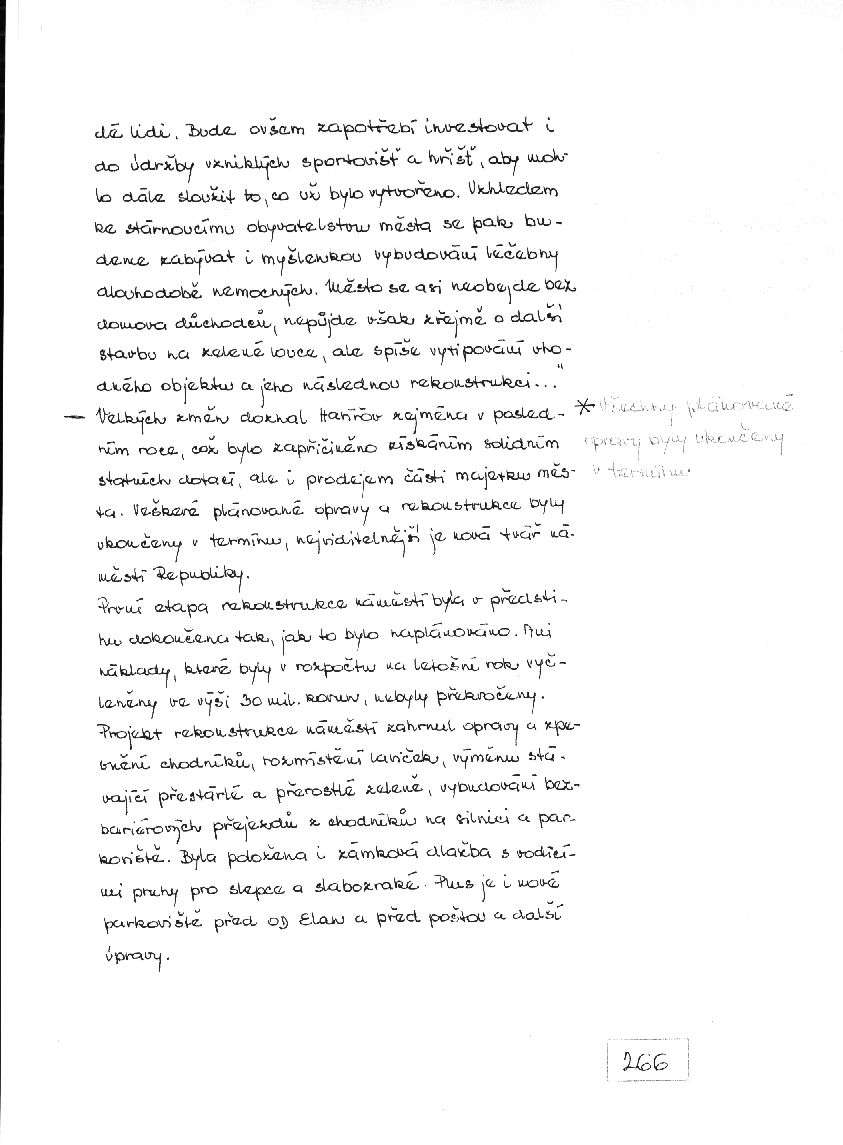 dé lidi. Bude ovšem zapotřebí investovat i
do údržby vzniklých sportovišť a hřišť, aby moh-
lo dále sloužit to, co už bylo vytvořeno. Vzhledem
ke stárnoucímu obyvatelstvu města se pak bu-
deme zabývat i myšlenkou vybudování léčebny
dlouhodobě nemocných. Město se asi neobejde bez
domova důchodců, nepůjde však zřejmě o další
stavbu na zelené louce, ale spíše vytipování vho-
dného objektu a jeho následnou rekonstrukci..."
— Velkých změn doznal Havířov zejména v posled-
ním roce, což bylo zapříčiněno získáním solidním
státních dotací, ale i prodejem části majetku měs-
ta. Veškeré plánované opravy a rekonstrukce byly
ukončeny v termínu, nejviditelnější je nová tvář ná-
městí Republiky.
* Všechny plánované
opravy byly ukončeny
v termínu
První etapa rekonstrukce náměstí byla v předsti-
hu dokončena tak, jak to bylo naplánováno. Ani
náklady, které byly v rozpočtu na letošní rok vyč-
leněny ve výši 30 mil. korun, nebyly překročeny.
Projekt rekonstrukce náměstí zahrnul opravy a zpe-
vnění chodníků, rozmístění laviček, výměnu stá-
vající přestárlé a přerostlé zeleně, vybudování bez-
bariérových přejezdů z chodníků na silnici a par-
koviště. Byla položena i zámková dlažba s vodící-
mi pruhy pro slepce a slabozraké. Plus je i nové
parkoviště před OD Elan a před poštou a další
úpravy.
266